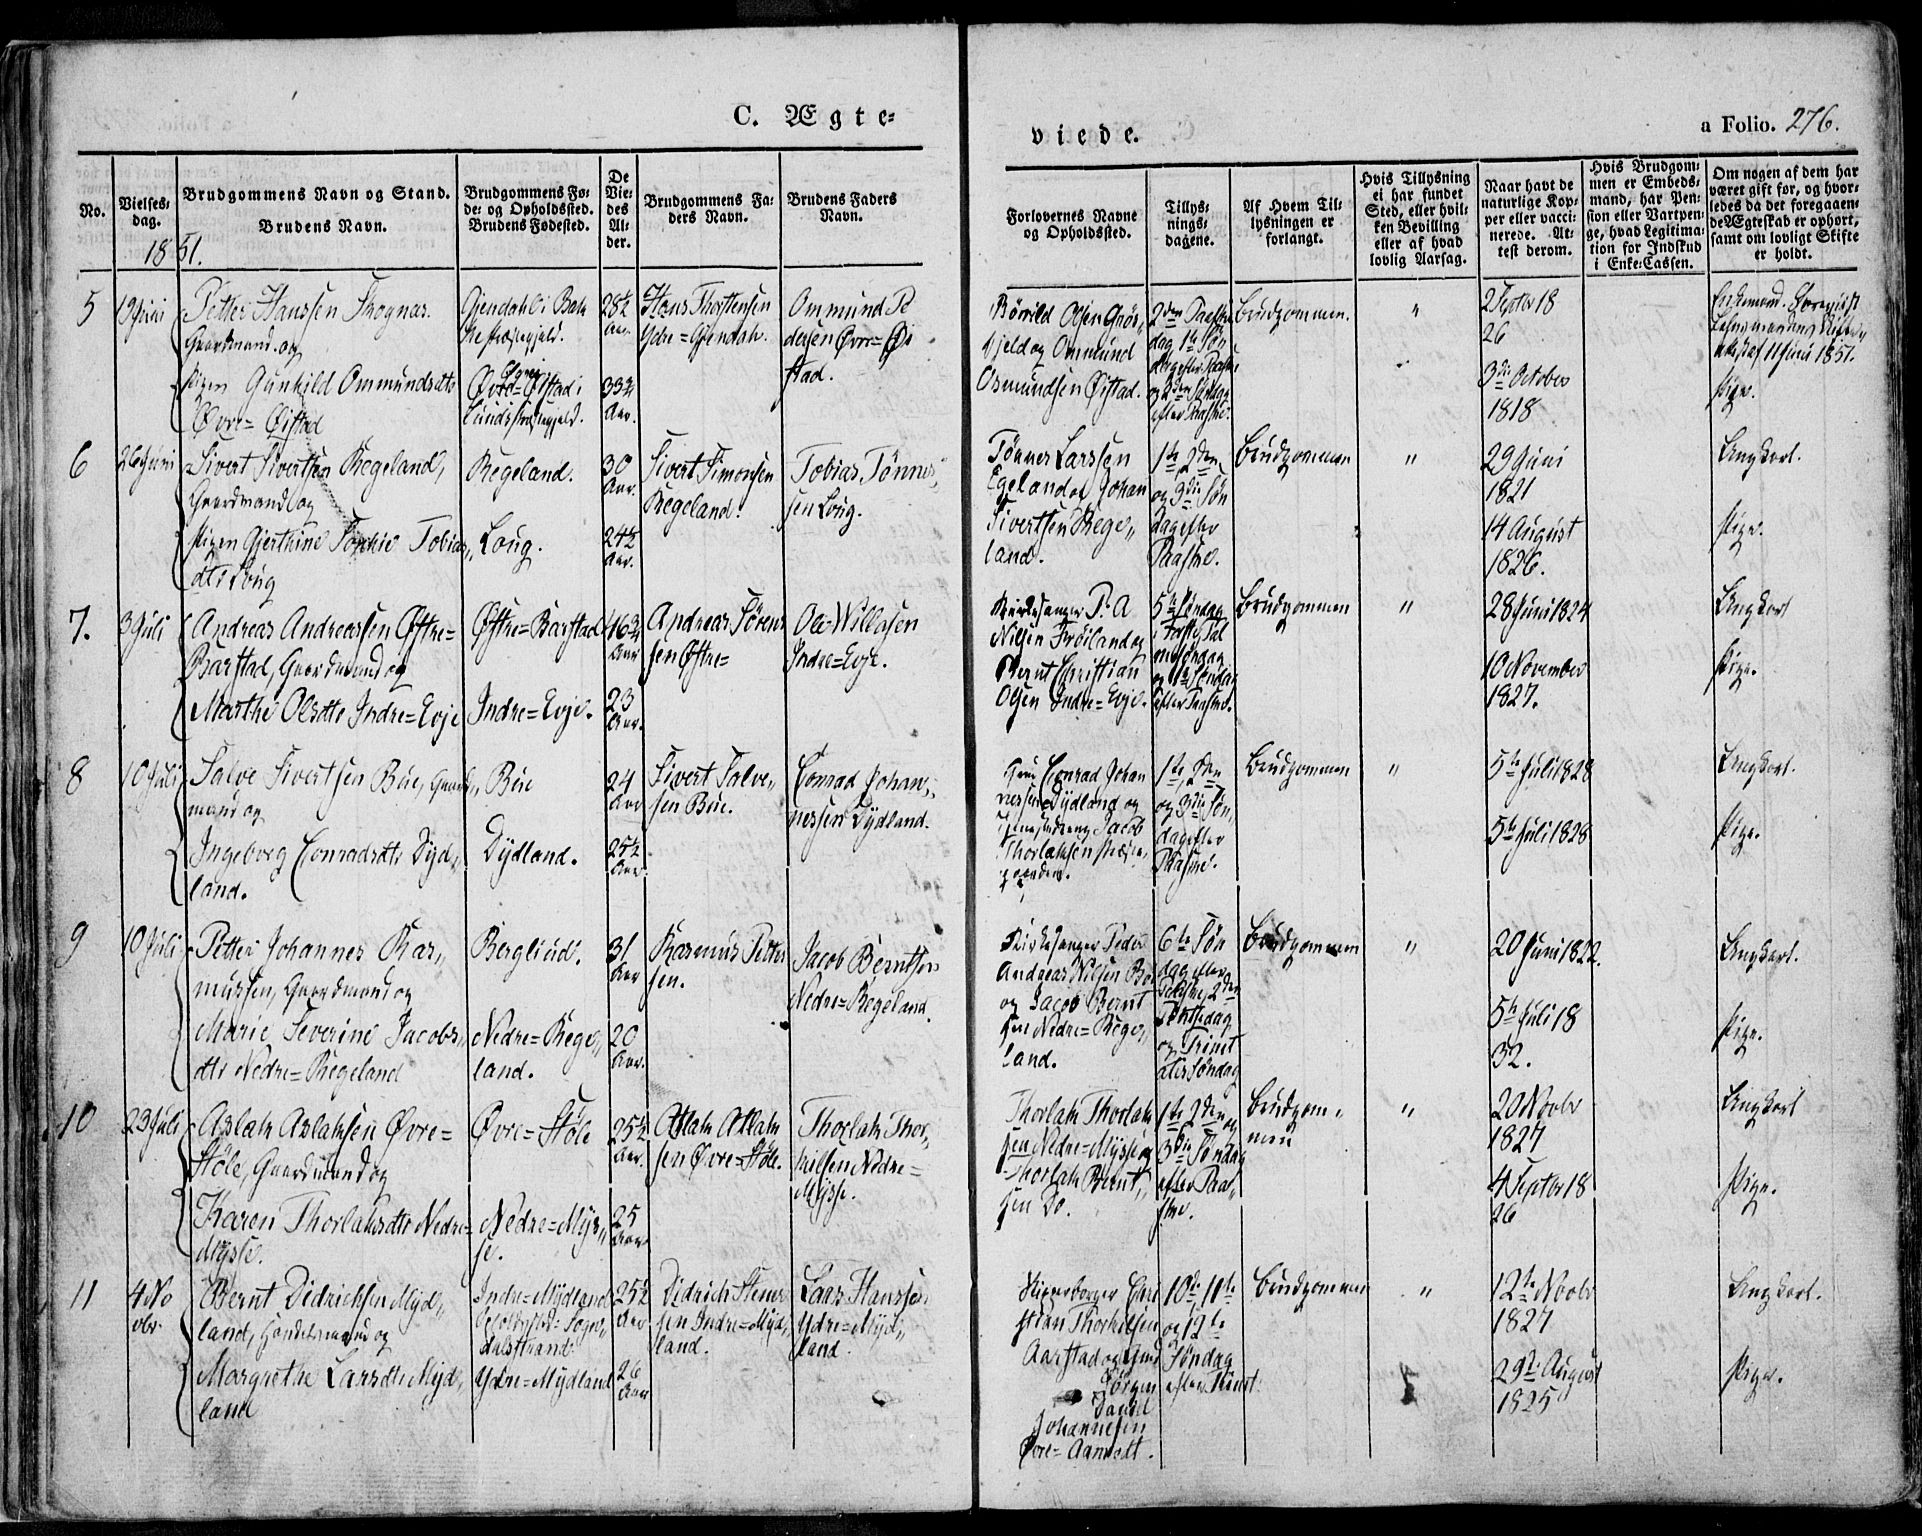 C. Ægte=
viede.
a Folio. 276.
No.
Vielses-
dag.
Brudgommens Navn og Stand.
Brudens Navn.
Brudgommens Fø-
de- og Opholdssted.
Brudens Fødested.
De
Vie-
des
Al-
der.
Brudgommens Fa-
ders Navn.
Brudens Faders
Navn.
Forlovernes Navne
og Opholdssted.
Tillys-
nings-
dagene.
Af Hvem Til-
lysningen er
forlangt.
Hvis Tillysning
ei har fundet
Sted, eller hvil-
ken Bevilling
eller af hvad
lovlig Aarsag.
Naar havt de
naturlige Kop-
per eller vacci-
nerede. At-
test derom.
Hvis Brudgom-
men er Embeds-
mand, har Pen-
sion eller Vartpen-
ge, hvad Legitima-
tion for Indskud
i Enke-Cassen.
Om nogen af dem har
været gift før, og hvor-
ledes da det foregaaen-
de Ægteskab er ophørt,
samt om lovligt Skifte
er holdt.
1851.
5
Petter Hanssen Skognas.
Gaardmand og
Pigen Gunhild Ommundsdtr
Øvre= Øistad
Gjendahl i Bak
ke Præstegjeld.
Øvre=Øistad i
Lunds Præstegjeld.
28½
Aar.
33¾
Aar.
Hans Thorstensen
Ydre=Gjendah.
Ommund Pe
dersen Øvre=Øi
stad.
Børild Olsen
fjeld og Ommund
Osmundsen Øistad.
2den Paaske
dag 1te Søn
dag efter Paaske
og 2den Søndag
efter Paaske.
Brudgommen.
"
2 Septbr 18
26
3die October
1818
Enkemand.
11 Juni 1851.
Pige.
6
26 Juni
Sivert Sivertsen Regeland,
Gaardmand og
Pigen Gjerthine Sophie Tobias„
dtr Loug
Regeland.
Loug.
30
Aar.
24½
Aar.
Sivert Simonsen
Regeland.
Tobias Tønnes„
sen Loug.
Tønnes Larssen
Egeland og Johan
Sivertsen Rege„
land.
1te, 2den
og 3die Søn
dag efter
Paaske.
Brudgommen
"
29 Juni
1821
14 August
1826.
Ungkarl.
Pige.
7.
3 Juli
Andreas Andreassen Østre=
Barstad, Gaardmand og
Marthe Olsdtr Indre=Evje
Østre=Barstad
Indre=Evje.
Aar
23
Aar.
Andreas Sørens
sen Østre=
Ole Willassen
Indre=Evje.
Kirkesanger P. A
Nilsen Frøiland og
Bernt Christian
Olsen Indre=Evje.
5te Søndag
i Faste, Pal
mesøndag
og 1te Søndag
efter Paaske.
Brudgommen
"
28 Juni 1824
10 November
1827.
Ungkarl
Pige.
8
10 Juli
Salve Sivertsen Bøe, Gaard„
mand og
Ingeborg Conradsdtr Dyd„
land.
Bøe
Dydland.
24
Aar
25½
Aar.
Sivert Salve„
sen Bøe.
Conrad Johan„
nessen Dydland.
Conrad Johan
nessen Dydland og
Jacob
Thorlaksen Præste„
gaarden.
1te, 2den
og 3die Søn„
dag efter
Paaske.
Brudgommen
"
5te Juli 1828
5te Juli 1828
Ungkarl.
Pige.
9
10 Juli
Petter Johannes Ras„
mussen, Gaardmand og
Marie Severine Jacobs„
dtr Nedre=Regeland
Berglund.
Nedre=Rege„
land.
31
Aar
20
Aar.
Rasmus Petter
sen.
Jacob Berntsen
Nedre=Regeland.
Kirkesanger Peder
Andreas Nilsen Bø
og Jacob Bernt
sen Nedre=Rege„
land.
6te Søn
dag efter
Paaske, 2den
Pintsedag
og Trinit
atis Søndag
Brudgommen
"
20 Juni 1822.
5te Juli 18
32.
Ungkarl.
Pige.
10
23 Juli
Aslak Aslaksen Øvre=
Støle, Gaardmand og
Karen Thorlaksdtr Nedre=
Mysse.
Øvre=Støle
Nedre=Mys„
se.
25½
Aar.
25
Aar
Atlak Atlak
sen Øvre=Støle.
Thorlak Thor„
kilsen Nedre=
Mysse.
Thorlak Thorlak
sen Nedre=Mysse og
Thorlak Bernt„
sen Do.
1te, 2den og
3die Søndag
efter Paa„
ske.
Brudgom„
men
"
20 Novbr
1827
4 Septbr 18
26
Ungkarl
Pige.
11
4 No
vbr.
Bernt Didriksen Myd„
land, Handelsmand og
Margrethe Larsdtr Myd„
land
Indre=Mydland
Opholdssted: Sogn„
dalsstrand
Ydre=Mydland
25½
Aar
26
Aar
Didrich
sen Indre=Myd„
land.
Lars Hanssen
Ydre=Myd„
land.
Chri
stian Thorkilsen
Aarstad og
Jørgen
Daniel
Johannesen
Øvre=Aamodt.
10de, 11te
og 12te
Søndag
efter Trinit.
Brudgommen
"
12te Novbr
1827
29de August
1825
Ungkarl.
Pige.